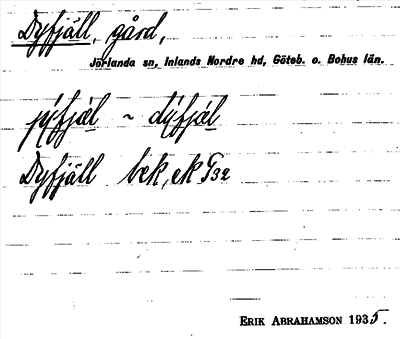 Dyfjäll, gård,
Jörlanda sn, Inlands Nordre hd, Göteb. o. Bohus län.
~ dýfjæl
Dyfjäll bek, ek G32
ERIK ABRAHAMSON 1935.